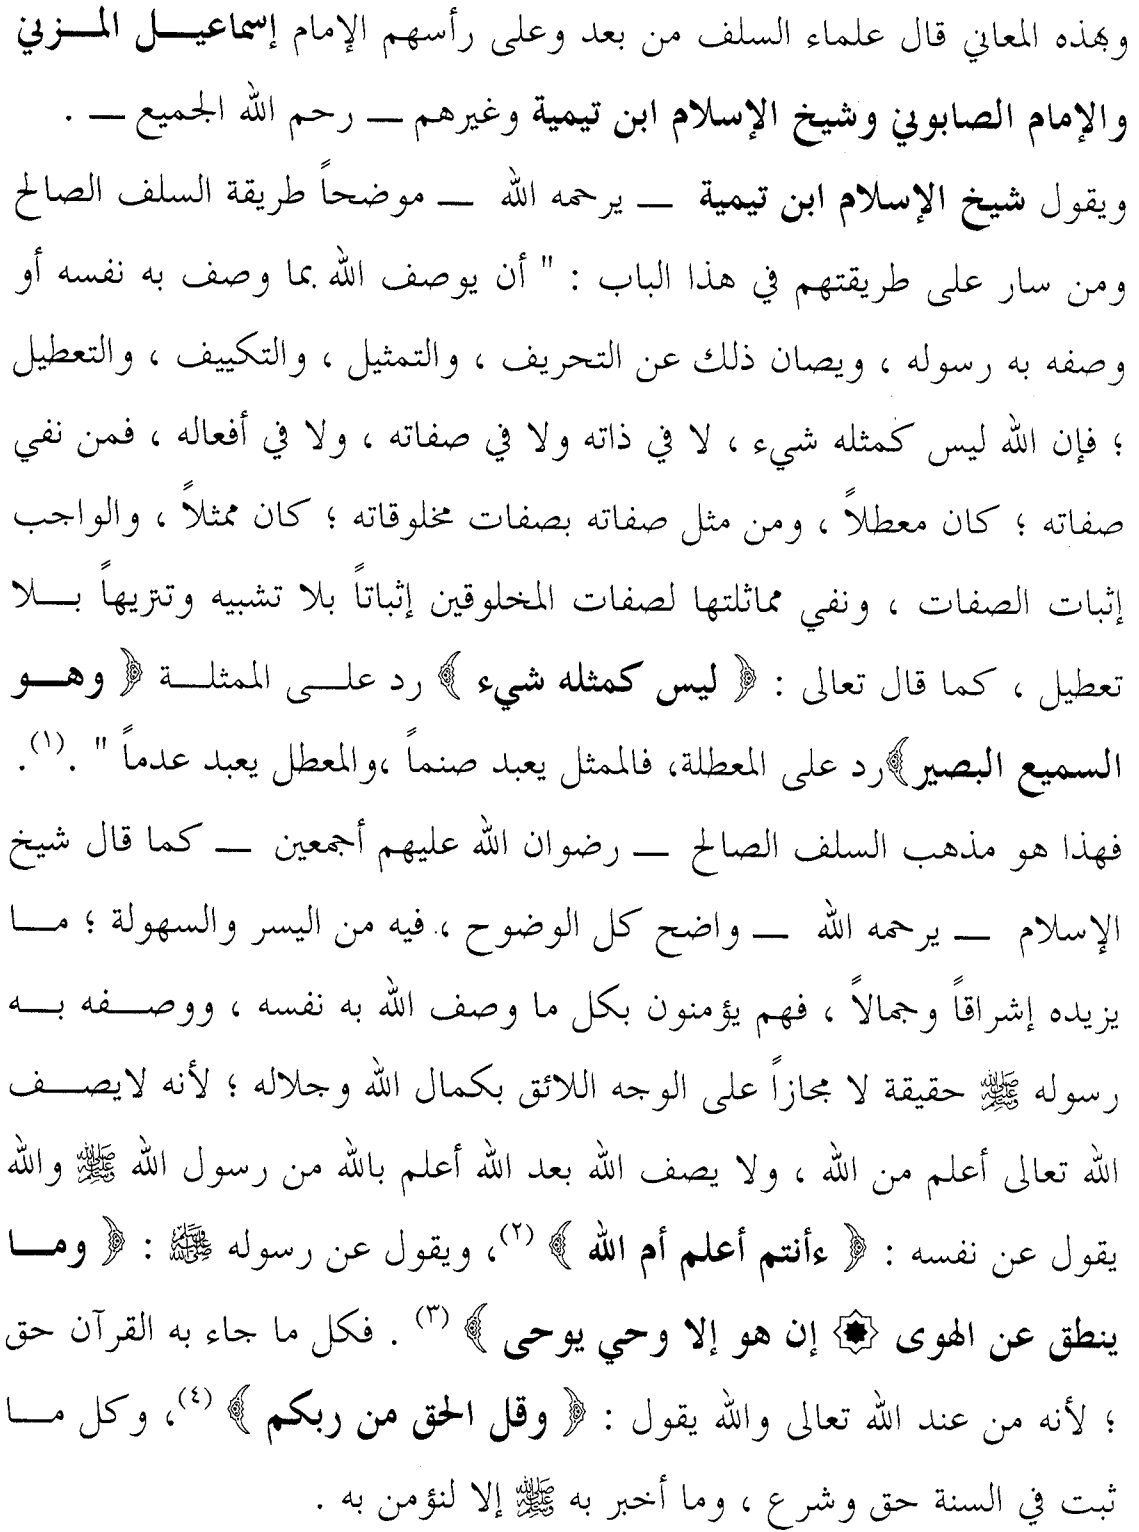 وبهذه المعاني قال علماء السلف من بعد وعلى رأسهم الإمام إسماعيـــل المـــزني
والإمام الصابوني وشيخ الإسلام ابن تيمية وغيرهم ـــ رحم الله الجميع ـــ .
ويقول شيخ الإسلام ابن تيمية ـــ يرحمه الله ـــ موضحاً طريقة السلف الصالح
ومن سار على طريقتهم في هذا الباب : " أن يوصف الله بما وصف به نفسه أو
وصفه به رسوله ، ويصان ذلك عن التحريف ، والتمثيل ، والتكييف ، والتعطيل
؛ فإن الله ليس كمثله شيء ، لا في ذاته ولا في صفاته ، ولا في أفعاله ، فمن نفي
صفاته ؛ كان معطلاً ، ومن مثل صفاته بصفات مخلوقاته ؛ كان ممثلاً ، والواجب
إثبات الصفات ، ونفي مماثلتها لصفات المخلوقين إثباتاً بلا تشبيه وتتريهاً بـــلا
تعطيل ، كما قال تعالى : ﴿ ليس كمثله شيء ﴾ رد علـــى الممثلـــة ﴿ وهـــو
السميع البصير ﴾رد على المعطلة، فالممثل يعبد صنماً ،والمعطل يعبد عدماً " .(١).
فهذا هو مذهب السلف الصالح ـــ رضوان الله عليهم أجمعين ـــ كما قال شيخ
الإسلام ـــ يرحمه الله ـــ واضح كل الوضوح ، فيه من اليسر والسهولة ؛ مـــا
يزيده إشراقاً وجمالاً ، فهم يؤمنون بكل ما وصف الله به نفسه ، ووصـــفه بـــه
رسوله ﷺ حقيقة لا مجازاً على الوجه اللائق بكمال الله وجلاله ؛ لأنه لايصـــف
الله تعالى أعلم من الله ، ولا يصف الله بعد الله أعلم بالله من رسول الله ﷺ والله
يقول عن نفسه : ﴿ ءأنتم أعلم أم الله ﴾ (٢)، ويقول عن رسوله ﷺ : ﴿ ومـــا
ينطق عن الهوى ۞ إن هو إلا وحي يوحى ﴾ (٣) . فكل ما جاء به القرآن حق
؛ لأنه من عند الله تعالى والله يقول : ﴿ وقل الحق من ربكم ﴾ (٤)، وكل مـــا
ثبت في السنة حق وشرع ، وما أخبر به ﷺ إلا لنؤمن به .